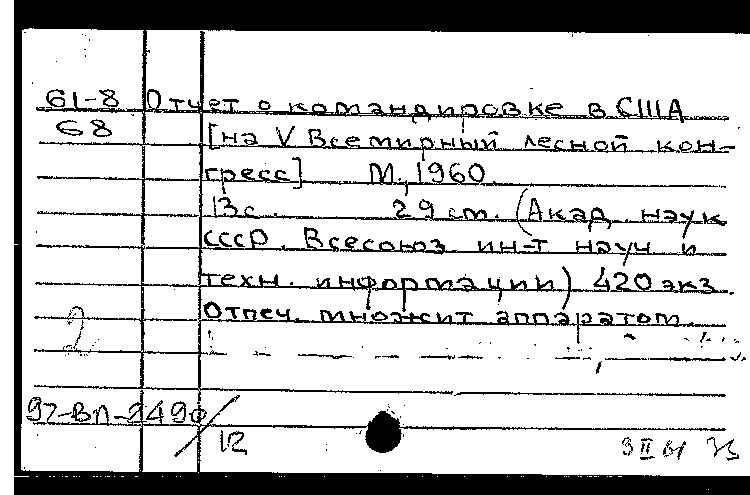 61-8 Отчет о командировке в США
68 [на V Всемирный лесной кон-
гресс] М., 1960
13с. 29 см. (Акад. наук
СССР. Всесоюз. ин-т науч. и
техн. информации) 420 экз.
Отпеч. множит аппаратом
2
97-ВЛ-2490/
12
3 II 61